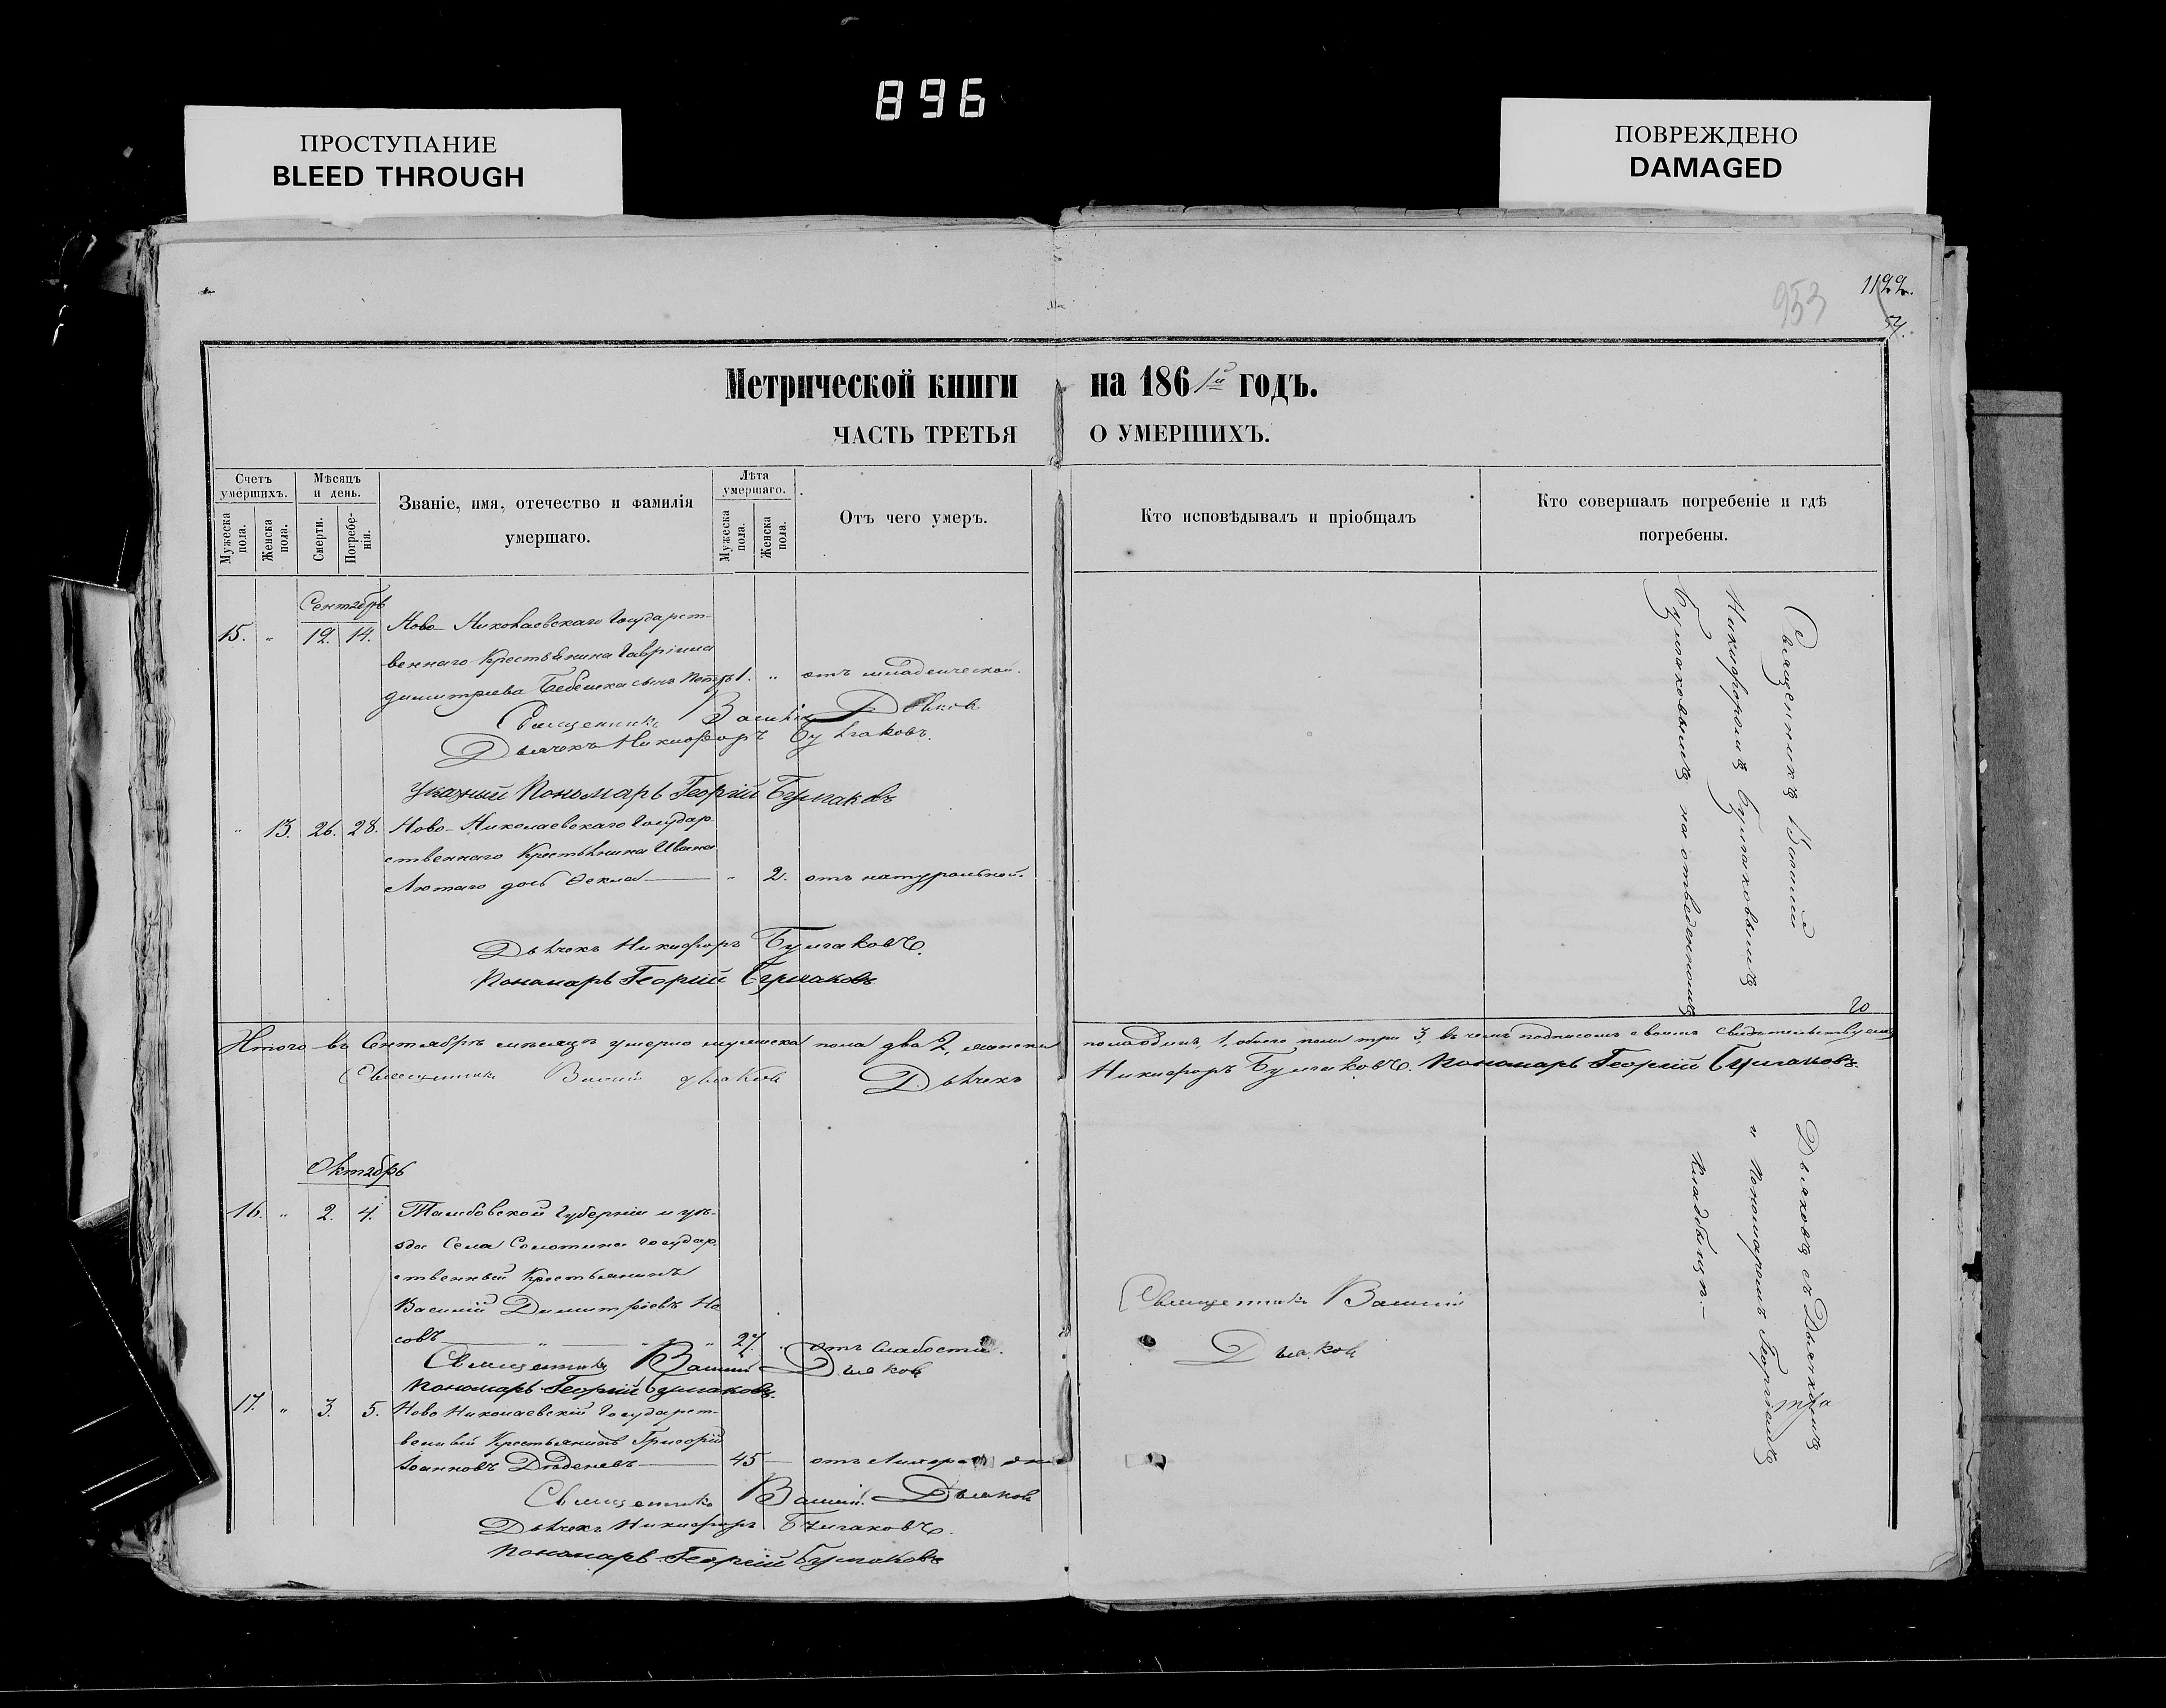 896
ПРОСТУПАНИЕ
BLEED THROUGH
ПОВРЕЖДЕНО
DAMAGED
953
1122.
57.
Метрической книги на 186 1й годъ.
ЧАСТЬ ТРЕТЬЯ О УМЕРШИХЪ.
Счетъ умершихъ.
Мужеска пола.
Женска пола.
Мѣсяцъ и день.
Смерти.
Погребенія.
Званіе, имя, отечество и фамилія умершаго.
Лѣта умершаго.
Мужеска пола.
Женска пола.
Отъ чего умеръ.
Кто исповѣдывалъ и пріобщалъ
Кто совершалъ погребеніе и гдѣ погребены.
Сентябрь
15. „ 12. 14. Ново-Николаевскаго Государст-
веннаго Крестьянина Гавріила
Димитріева сынъ Петръ 1. „ отъ младенческой.
Священникъ Василій Дьяковъ
Дьячекъ Никифоръ Булгаковъ.
Указный Пономарь Георгій Булгаковъ
„ 13. 26. 28. Ново-Николаевскаго Государ-
ственнаго Крестьянина Ивана
Лютаго дочь Ѳекла — „ 2. отъ натуральной.
Дьячекъ Никифоръ Булгаковъ.
Пономарь Георгій Булгаковъ
Итого въ Сентябрѣ мѣсяцѣ умерло мужеска пола два 2, женска
пола одинъ, 1, обоего пола три 3, въ чемъ подписомъ своимъ свидѣтельствуемъ
Священникъ Василій Дьяковъ Дьячекъ
Никифоръ Булгаковъ. Пономарь Георгій Булгаковъ.
Октябрь
16. „ 2. 4. Тамбовской Губерніи и уѣз-
зда Села Государ-
ственный Крестьянинъ
Василій Димитріевъ На
совъ — „ 27. „ отъ слабости.
Священникъ Василій Дьяковъ
Пономарь Георгій Булгаковъ.
17. „ 3. 5. Ново Николаевскій Государст-
венный Крестьянинъ Григорій
Іоанновъ — 45 — отъ
Священникъ Василій Дьяковъ
Дьячекъ Никифоръ Булгаковъ.
Пономарь Георгій Булгаковъ
Священникъ Василій
Дьяковъ
Священникъ Василій Дьяковъ съ Дьячкомъ
Никифоромъ Булгаковымъ и Пономаремъ Георгіемъ
Булгаковымъ на отведенномъ кладбищѣ.